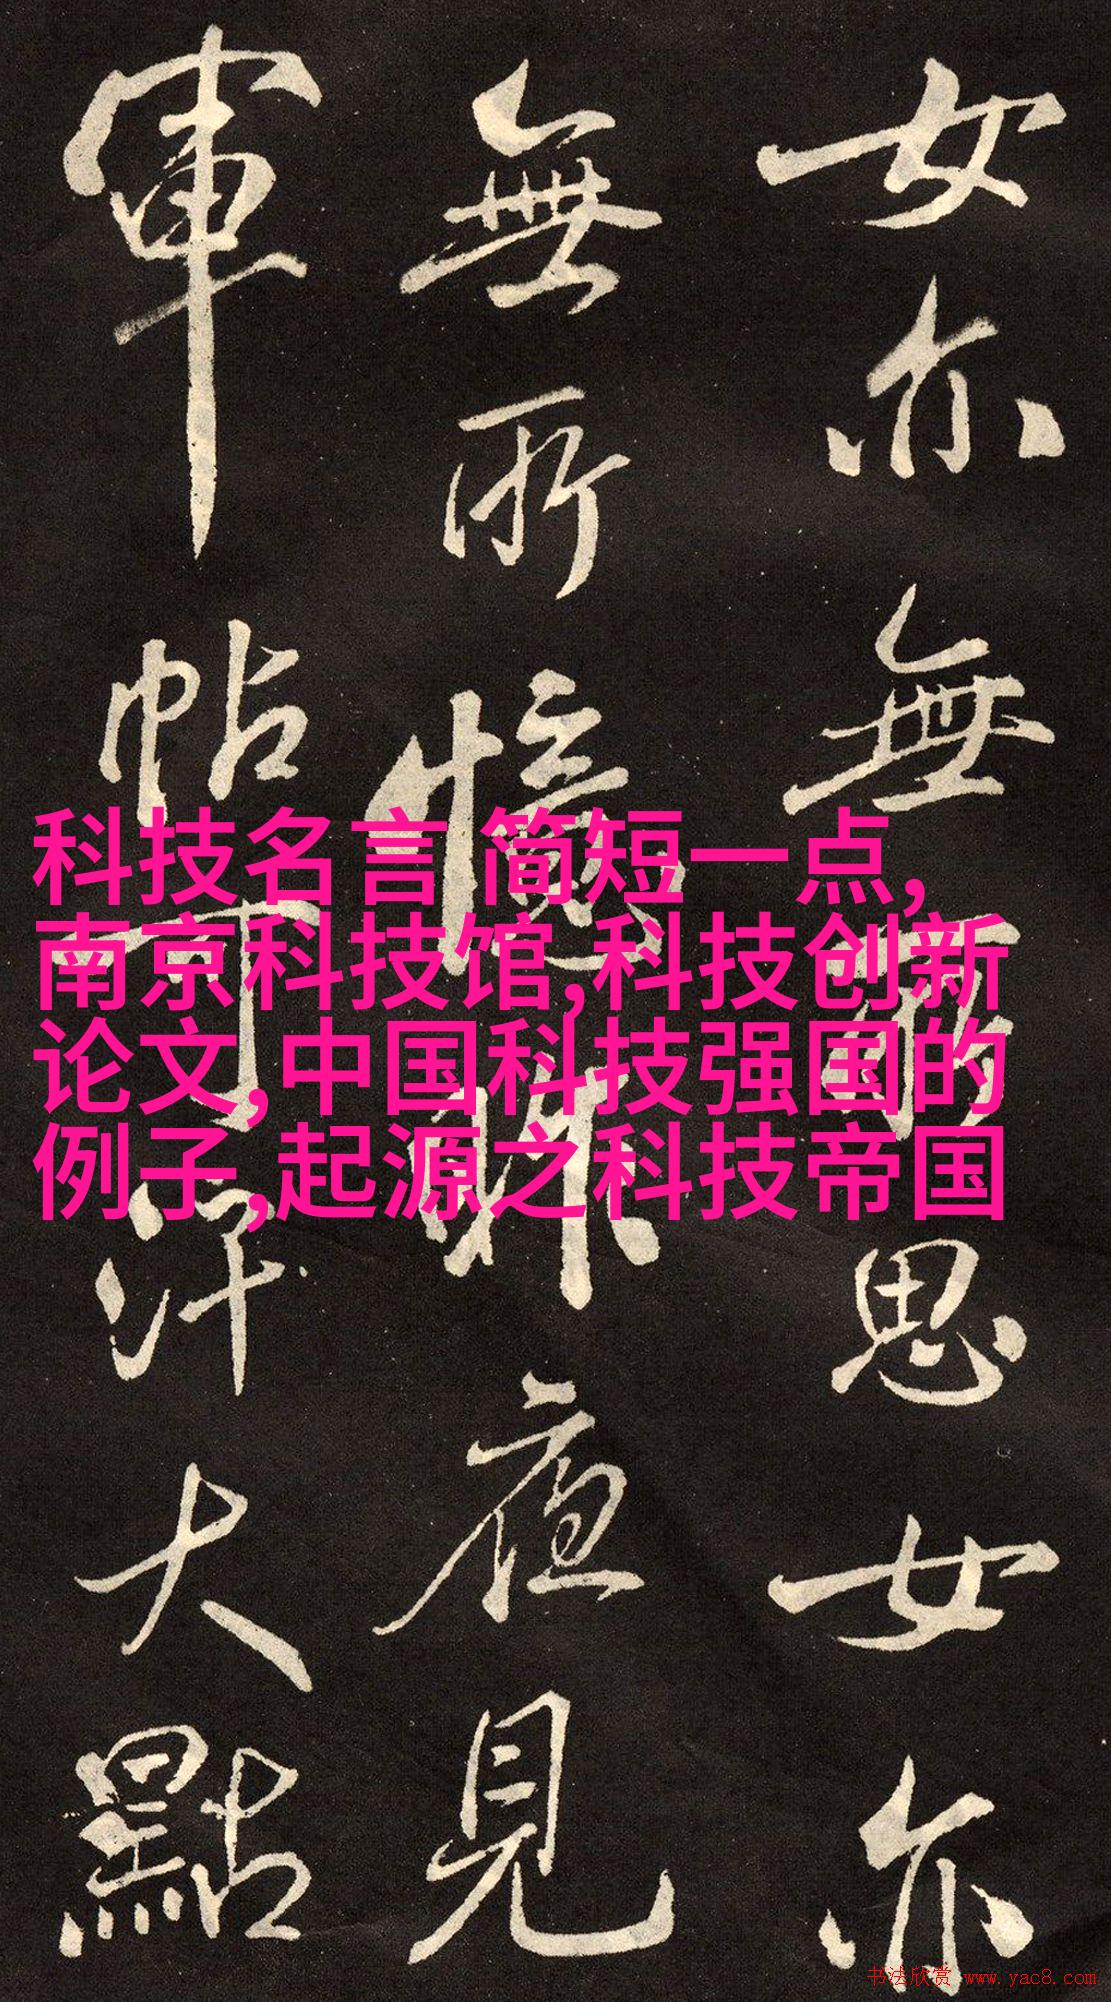 女亦無所思女亦
無所憶昨夜見
軍帖可汗大點
科技名言 简短一点,
南京科技馆,科技创新
论文,中国科技强国的
例子,起源之科技帝国
书法欣赏 www.yac8.com